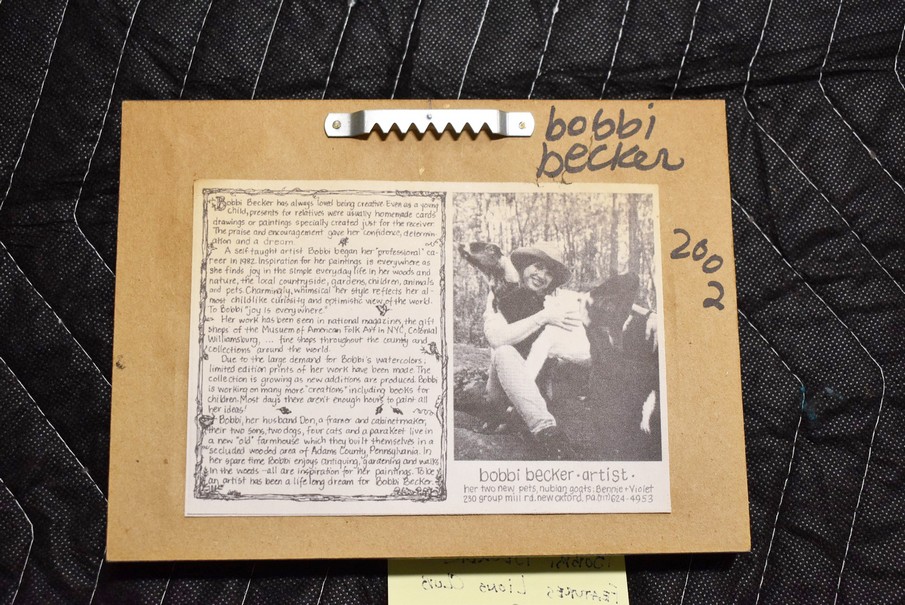 bobbi
becker
200
2
Bobbi Becker has always loved being creative. Even as a young
child, presents for relatives were usually homemade cards
drawings or paintings specially created just for the receiver.
The praise and encouragement gave her confidence, determin-
ation and a dream.
A self taught artist Bobbi began her "professional" ca-
reer in 1982. Inspiration for her paintings is everywhere as
she finds joy in the simple everyday life in her woods and
nature, the local countryside, gardens, children, animals
and pets. Charmingly, whimsical her style reflects her al-
most childlike curiosity and optimistic view of the world.
To Bobbi "joy is everywhere".
Her work has been seen in national magazines, the gift
shops of the Musuem of American Folk Art in NYC, Colonial
Williamsburg, ... fine shops throughout the country and
collections around the world.
Due to the large demand for Bobbi's watercolors,
limited edition prints of her work have been made. The
collection is growing as new additions are produced. Bobbi
is working on many more "creations" including books for
children. Most days there aren't enough hours to paint all
her ideas!
Bobbi, her husband Don, a framer and cabinetmaker,
their two sons, two dogs, four cats and a parakeet live in
a new "old" farmhouse which they built themselves in a
secluded wooded area of Adams County, Pennsylvania. In
her spare time Bobbi enjoys antiquing, gardening and walks
in the woods - all are inspiration for her paintings. To be
an artist has been a life long dream for Bobbi Becker.
bobbi becker • artist •
her two new pets, nubian goats: Bennie + Violet
230 group mill rd. new oxford, pa (717) 624-4953
Features Lions Club